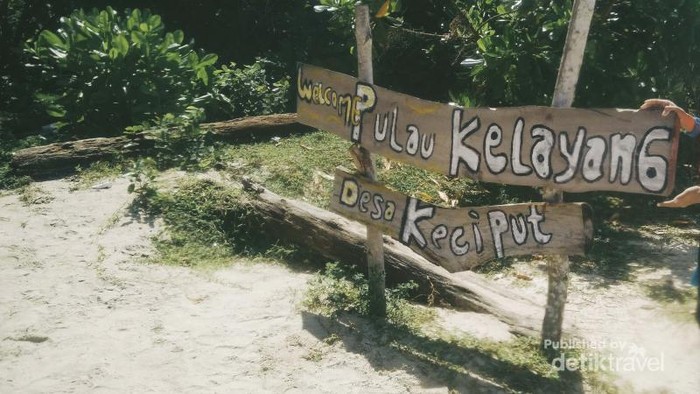 Welcome Pulau Kelayang
Desa Keciput
Published by
detiktravel